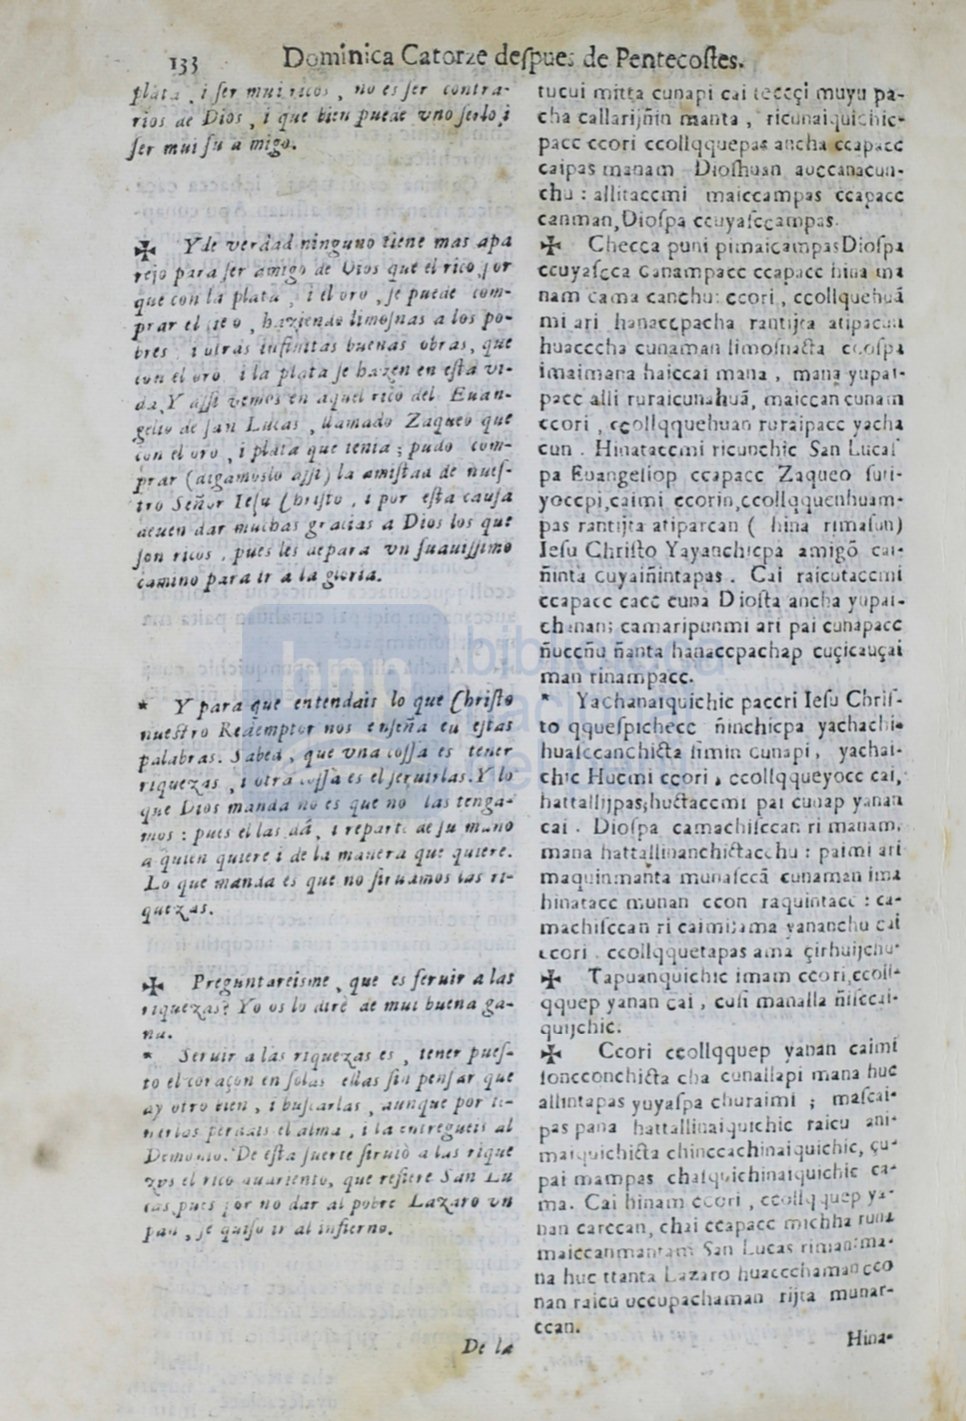 133 Dominica Catorze despues de Pentecostes.
plata, i ser mui ricos, no es ser contra-
rios de Dios, i que bien puede vno serlo, i
ser mui su amigo.
✠ Y de verdad ninguno tiene mas apa
rejo para ser amigo de Dios que el rico, por
que con la plata, i el oro, se puede com-
prar el cielo, haziendo limosnas a los po-
bres i otras infinitas buenas obras, que
con el oro i la plata se hazen en esta vi-
da. Y assi vemos en aquel rico del Euan-
gelio de san Lucas, llamado Zaqueo que
con el oro, i plata que tenia; pudo com-
prar (digamoslo assi) la amistad de nues-
tro Señor Iesu Christo, i por esta causa
deuen dar muchas gracias a Dios los que
son ricos, pues les depara vn suauissimo
camino para ir a la gloria.
* Y para que entendais lo que Christo
nuestro Redemptor nos enseña en estas
palabras. Sabed, que vna cossa es tener
riquezas, i otra cossa es el seruirlas. Y lo
que Dios manda no es que no las tenga-
mos: pues el las dá, i reparte de su mano
a quien quiere i de la manera que quiere.
Lo que manda es que no siruamos las ri-
quezas.
✠ Preguntareisme, que es seruir a las
riquezas? Yo os lo diré de mui buena ga-
na.
* Seruir a las riquezas es, tener pues-
to el coraçon en solas ellas sin pensar que
ay otro bien, i buscarlas, aunque por te-
nerlas perdais el alma, i la entregueis al
Demonio. De esta suerte siruiò a las rique
zas el rico auariento, que refiere San Lu
cas pues por no dar al pobre Lazaro vn
pan, se quiso ir al infierno.
De la
tucui mitta cunapi cai teccçi muyu pa-
cha callarijñin manta, ricunaiquichic-
pacc ccori ccollqquepas ancha ccapacc
caipas manam Dioshuan auccanacun-
chu: allitaccmi maiccampas ccapacc
canman, Diospa ccuyasccampas.
✠ Checca puni pimaicampas Diospa
ccuyascca canampacc ccapacc hina ma
nam cama canchu: ccori, ccollquehuã
mi ari hanaccpacha rantijta atipacun
huacccha cunaman limosnacta ccospa
imaimana haiccai mana, mana yupai-
pacc alli ruraicunahuã, maiccan cunam
ccori, ccollqquehuan ruraipacc yacha
cun. Hinataccmi ricunchic San Lucas
pa Euangeliop ccapacc Zaqueo suti-
yoccpi, caimi ccorin, ccollqquenhuam-
pas rantijta atiparcan (hina rimasun)
Iesu Christo Yayanchicpa amigõ cai-
ñinta cuyaiñintapas. Cai raicutaccmi
ccapacc cacc cuna Diosta ancha yupai-
chanan; camaripunmi ari pai cunapacc
ñuccñu ñanta hanaccpachap cuçicauçai
man rinampacc.
* Yachanaiquichic paccri Iesu Chris-
to qquespichecc ñinchicpa yachachi-
huasccanchicta simin cunapi, yachai-
chic Hucmi ccori, ccollqqueyocc cai,
hattallijpas; huctaccmi pai cunap yanan
cai. Diospa camachisccan ri manam,
mana hattallinanchictacchu: paimi ari
maquinmanta munasccã cunaman ima
hinatacc munan ccon raquintacc: ca-
machisccan ri caimi: ama yananchu cai
ccori ccollqquetapas ama çirhuijchu
✠ Tapuanquichic imam ccori, ccoll-
qquep yanan cai, cusi manalla ñisccai-
quijchic.
✠ Ccori ccollqquep yanan caimi
soncconchicta cha cunallapi mana huc
allintapas yuyaspa churaimi; mascai-
pas pana hattallinaiquichic raicu ani-
maiquichicta chinccachinaiquichic, çu-
pai mampas chasquichinaiquichic ca-
ma. Cai hinam ccori, ccollqquep ya-
nan carccan, chai ccapacc michha runa
maiccanmantam San Lucas riman: ma-
na huc ttanta Lazaro huaccchaman cco
nan raicu uccupachaman rijta munar-
ccan.
Hina-